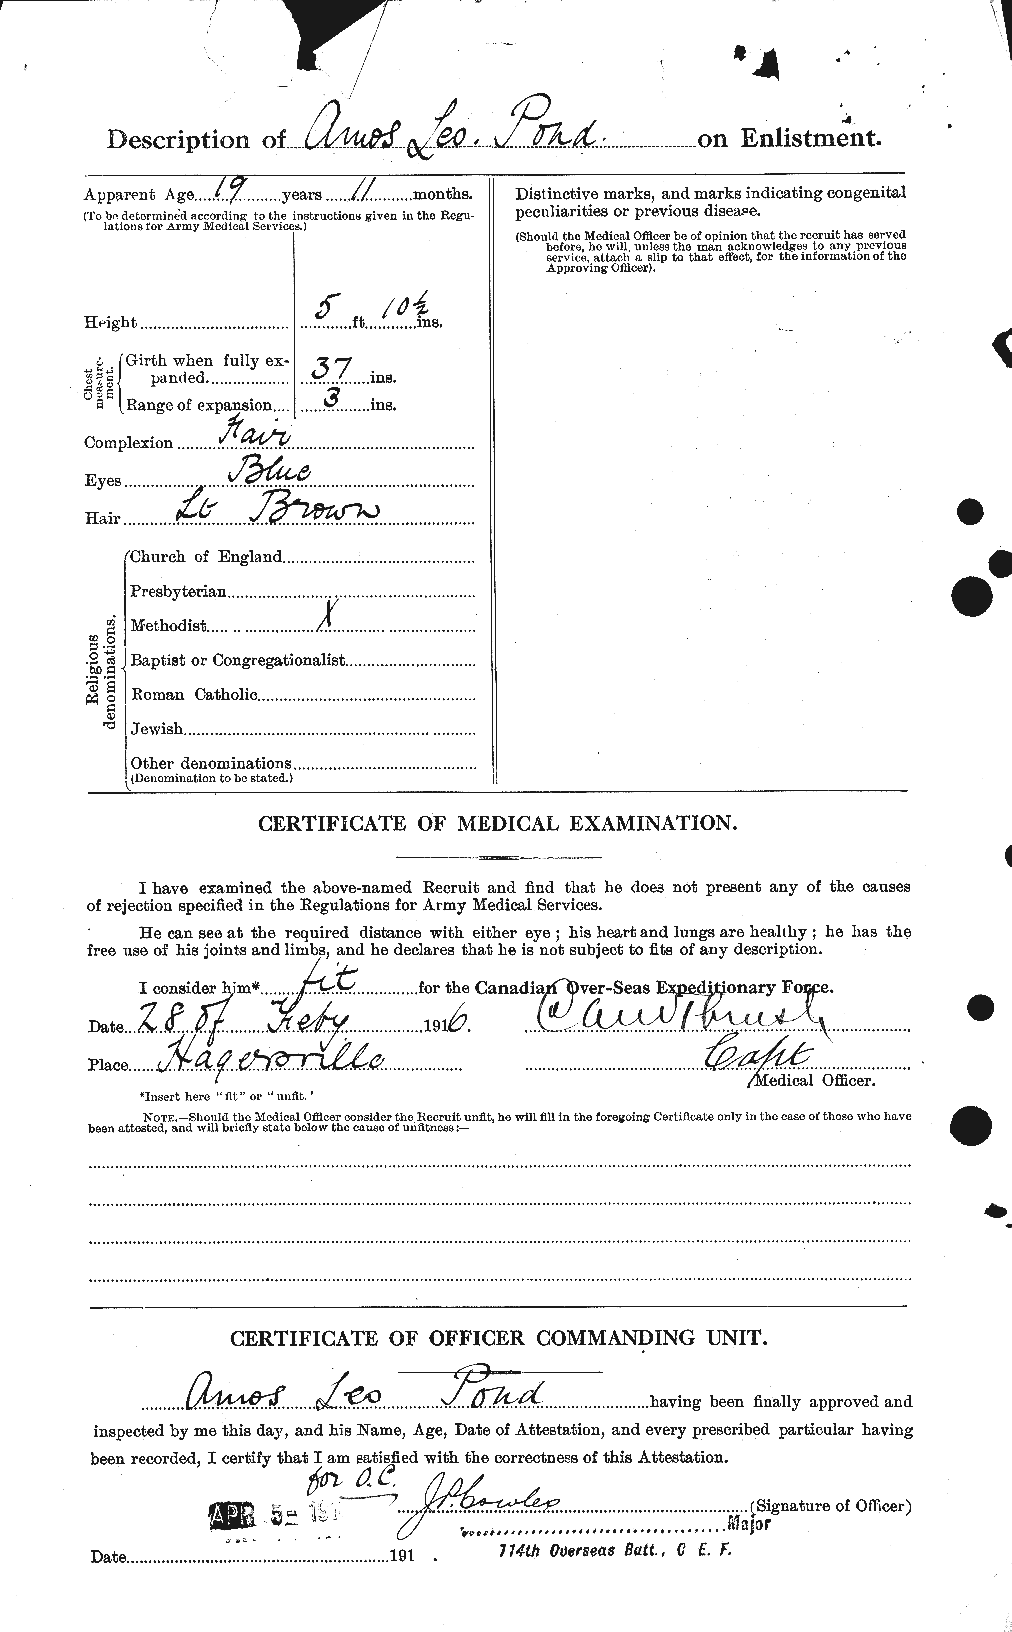 Description of Amos Leo. Pond. on Enlistment.
Apparent Age 19 years 11 months.
(To be determined according to the instructions given in the Regu-
lations for Army Medical Services.)
Height 5 ft. 10½ ins.
Chest measurement.
Girth when fully ex-
panded 37 ins.
Range of expansion 3 ins.
Complexion Fair
Eyes Blue
Hair Lt Brown
Religious denominations.
Church of England
Presbyterian
Methodist X
Baptist or Congregationalist
Roman Catholic
Jewish
Other denominations
(Denomination to be stated.)
Distinctive marks, and marks indicating congenital
peculiarities or previous disease.
(Should the Medical Officer be of opinion that the recruit has served
before, he will, unless the man acknowledges to any previous
service, attach a slip to that effect, for the information of the
Approving Officer).
CERTIFICATE OF MEDICAL EXAMINATION.
I have examined the above-named Recruit and find that he does not present any of the causes
of rejection specified in the Regulations for Army Medical Services.
He can see at the required distance with either eye ; his heart and lungs are healthy ; he has the
free use of his joints and limbs, and he declares that he is not subject to fits of any description.
I consider him* fit for the Canadian Over-Seas Expeditionary Force.
Date 28 of Feby 1916.
Place Hagersville Capt
Medical Officer.
*Insert here "fit" or "unfit."
NOTE.—Should the Medical Officer consider the Recruit unfit, he will fill in the foregoing Certificate only in the case of those who have
been attested, and will briefly state below the cause of unfitness :—
CERTIFICATE OF OFFICER COMMANDING UNIT.
Amos Leo Pond having been finally approved and
inspected by me this day, and his Name, Age, Date of Attestation, and every prescribed particular having
been recorded, I certify that I am satisfied with the correctness of this Attestation.
for O.C.
(Signature of Officer)
APR 5- 191
Major
Date 191 .
114th Overseas Batt., C E. F.